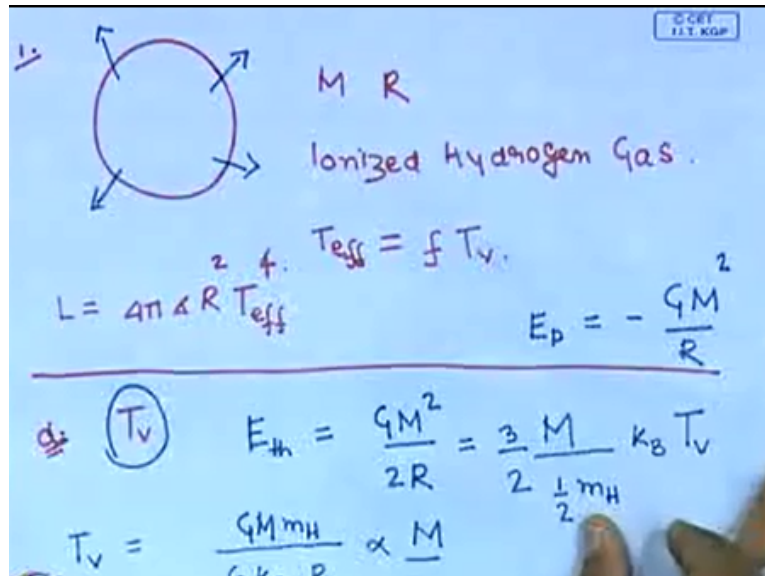 © CET
I.I.T. KGP
1.
M R
Ionized Hydrogen Gas.
T_eff = f T_v.
L = 4π σ R² T_eff⁴.
E_p = - GM²/R
a. T_v E_th = GM²/2R = 3/2 M/(1/2 m_H) k_B T_v
T_v = GM m_H / R ∝ M